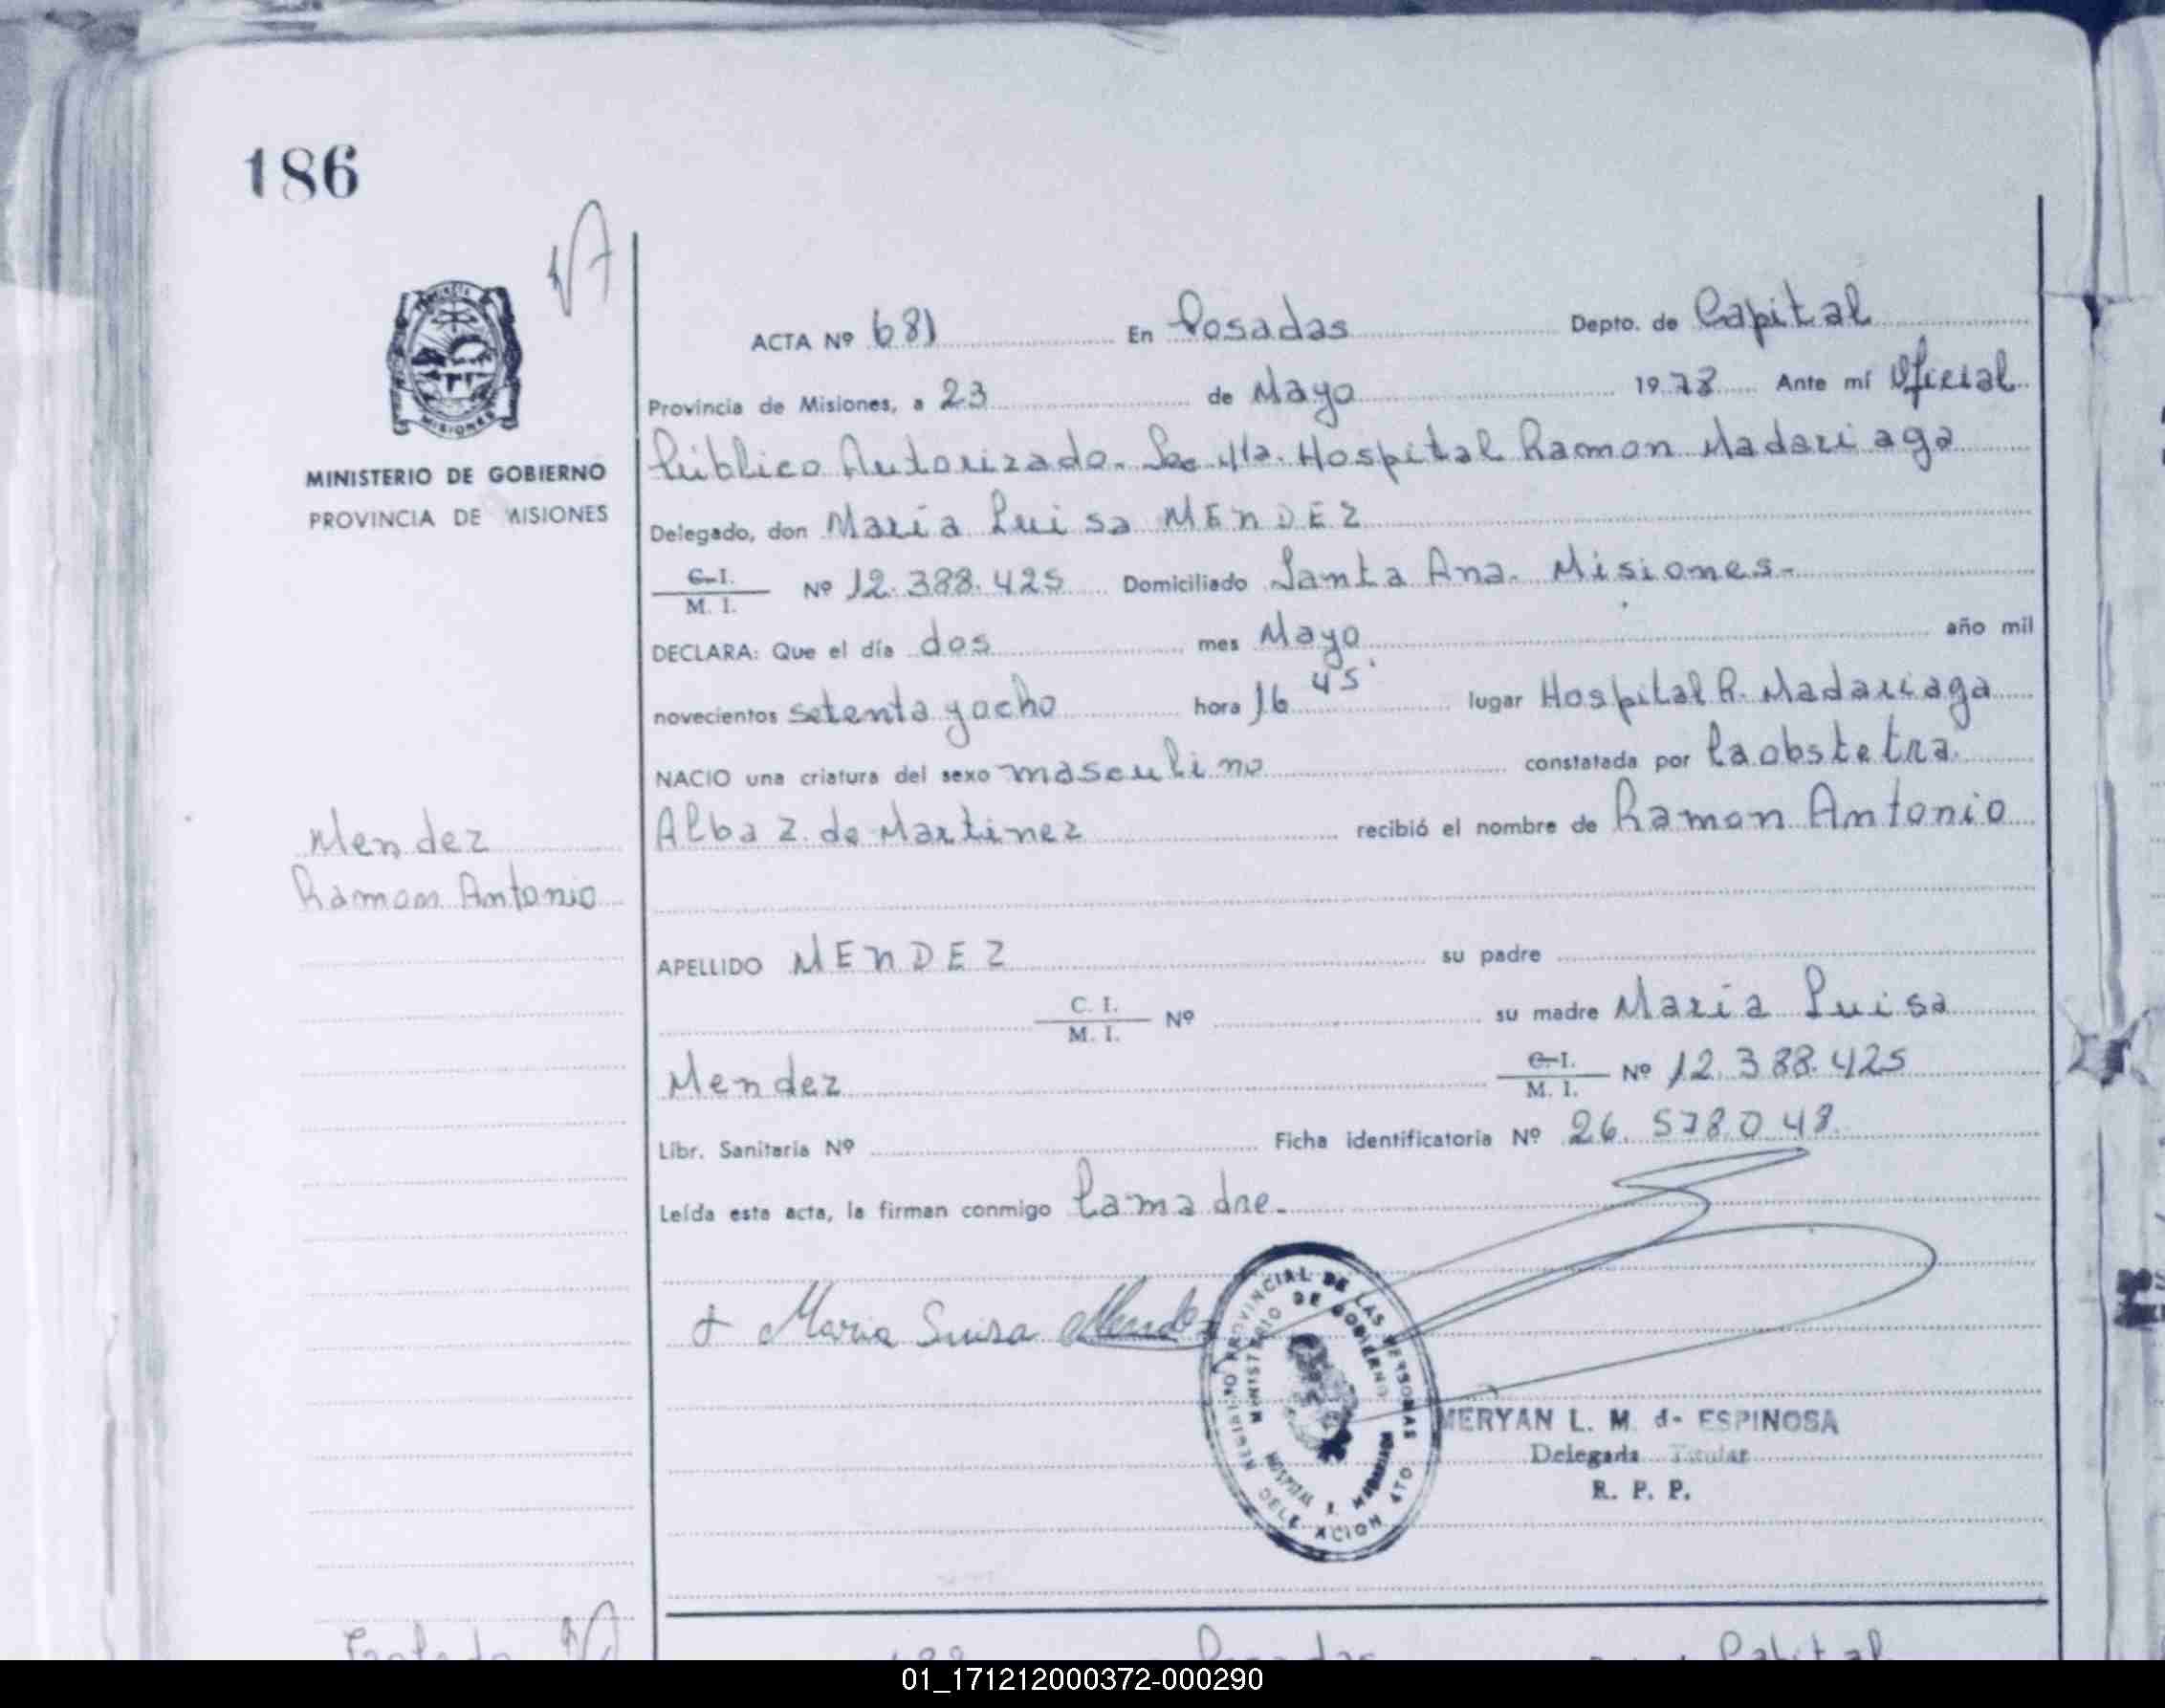 186
MINISTERIO DE GOBIERNO
PROVINCIA DE MISIONES
ACTA Nº 681 En Posadas Depto. de Capital
Provincia de Misiones, a 23 de Mayo 1978 Ante mí Oficial
Público Autorizado. Sec 4ta. Hospital Ramon Madariaga
Delegado, don María Luisa MENDEZ
C.I. / M. I. Nº 12.388.425 Domiciliado Santa Ana. Misiones.-
DECLARA: Que el día dos mes Mayo año mil
novecientos setenta y ocho hora 16 45' lugar Hospital R. Madariaga
NACIO una criatura del sexo masculino constatada por la obstetra.
Alba Z. de Martinez recibió el nombre de Ramon Antonio
Mendez
Ramon Antonio
APELLIDO MENDEZ su padre
C. I. / M. I. Nº su madre María Luisa
Mendez C.I. / M. I. Nº 12.388.425
Libr. Sanitaria Nº Ficha identificatoria Nº 26.578.048
Leída esta acta, la firman conmigo la madre.-
Maria Luisa Mendez
REGISTRO PROVINCIAL DE LAS PERSONAS
MINISTERIO DE GOBIERNO
HOSPITAL R. MADARIAGA
MERYAN L. M. de ESPINOSA
Delegada Titular
R. P. P.
Posadas Capital
01_171212000372-000290